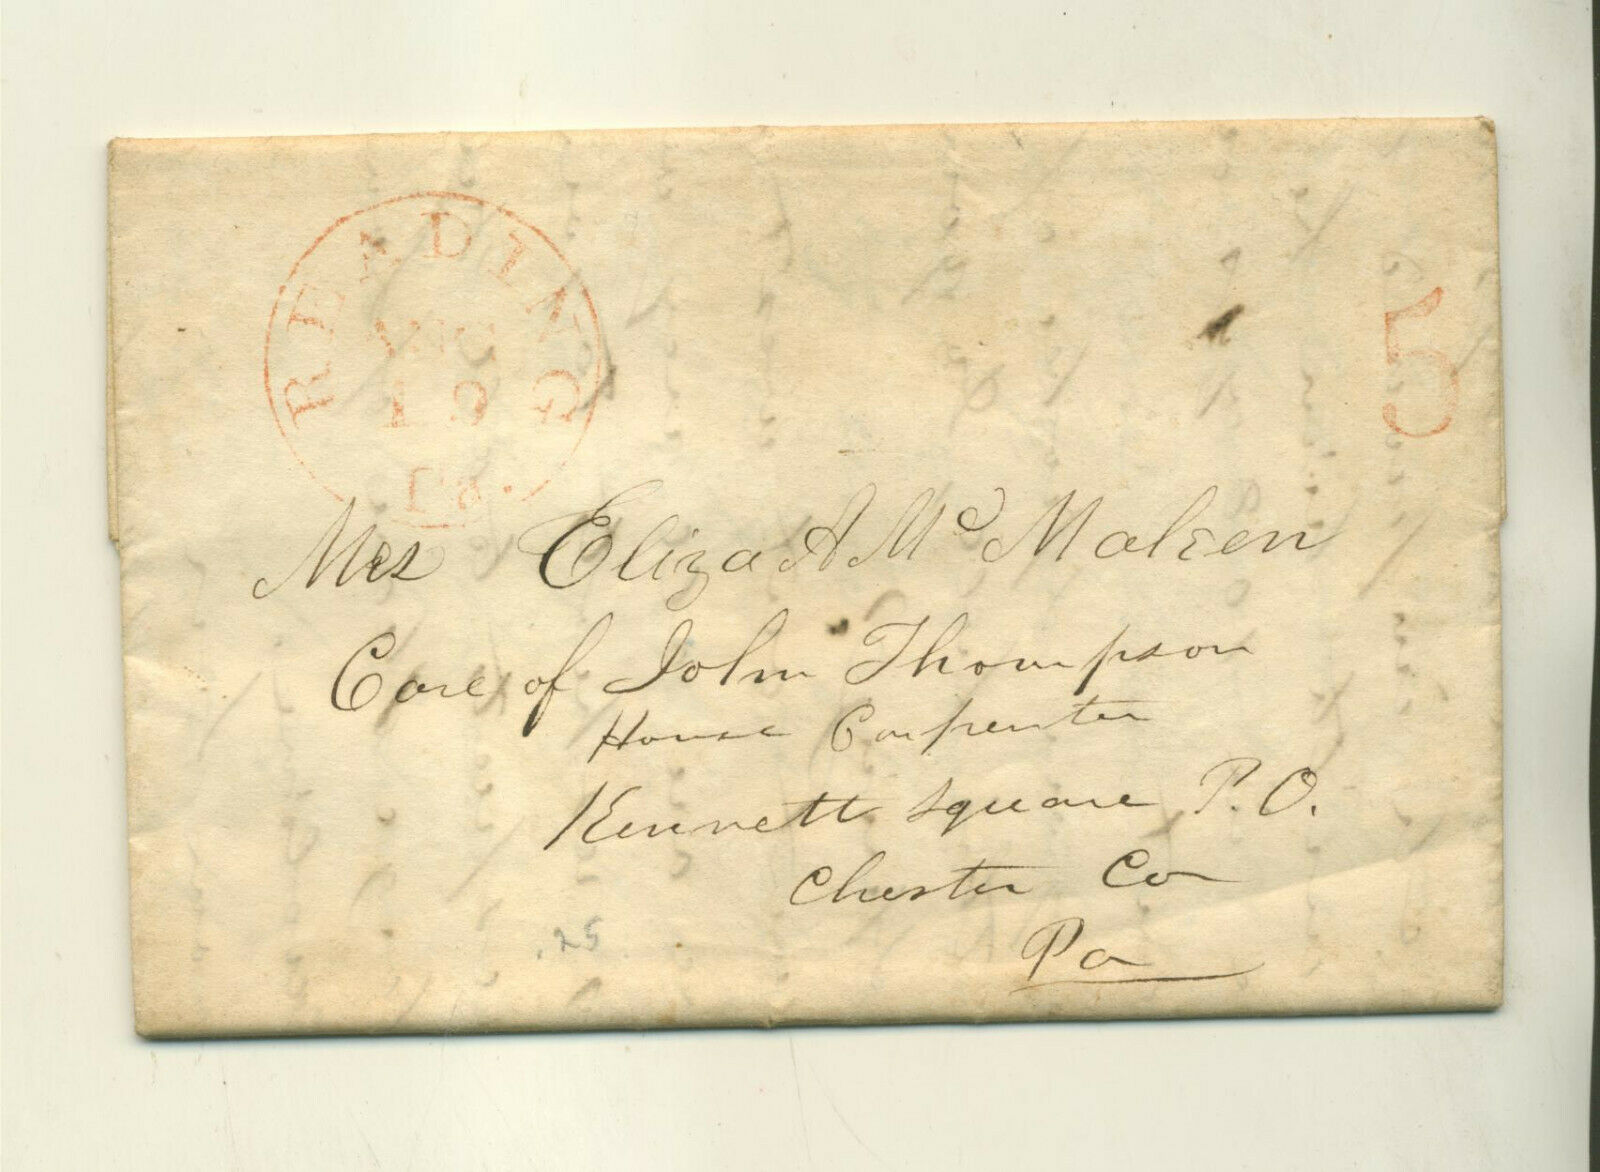 READING
19
Pa.
5
Mrs Eliza A McMaken
Care of John Thompson
House Carpenter
Kennett Square P.O.
Chester Co
Pa
.25